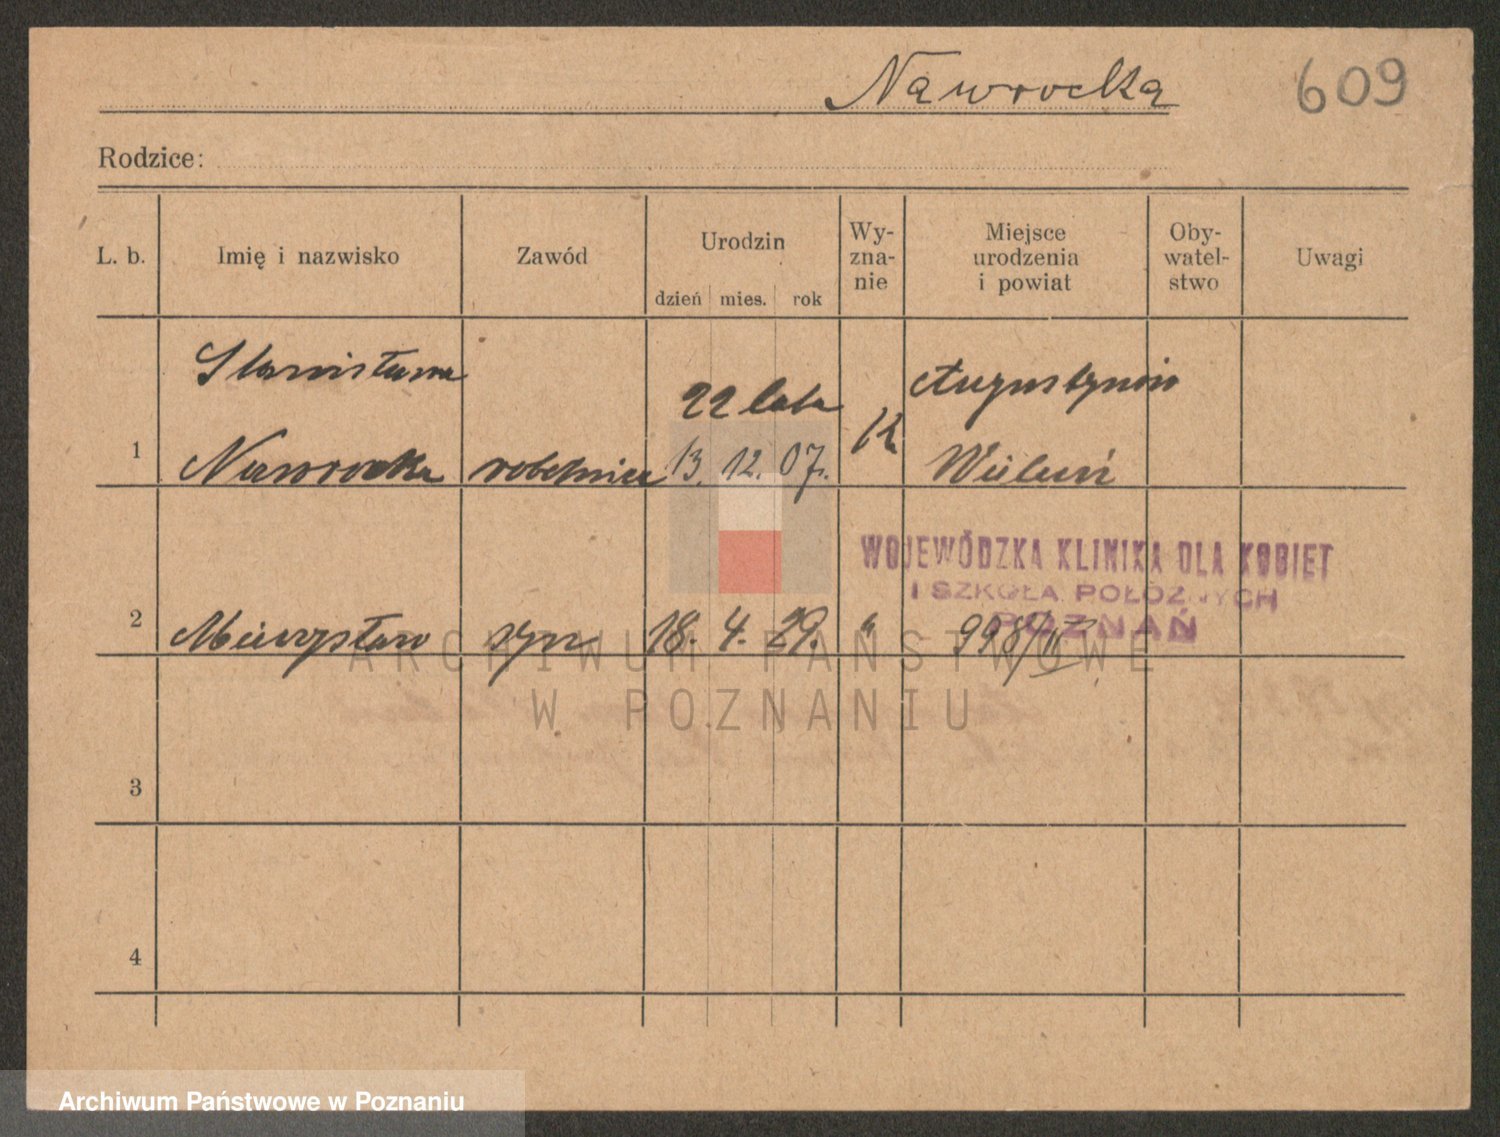 Nawrocka
609
Rodzice:
L. b.
Imię i nazwisko
Zawód
Urodzin
dzień mies. rok
Wy-
zna-
nie
Miejsce
urodzenia
i powiat
Oby-
watel-
stwo
Uwagi
Stanisława
22 lata
Augustynów
1
Nawrocka
robotnica
13. 12. 07.
K
Wieluń
WOJEWÓDZKA KLINIKA DLA KOBIET
I SZKOŁA POŁOŻNYCH
POZNAŃ
2
Mieczysław
syn
18. 4. 29.
"
ARCHIWUM PAŃSTWOWE
W POZNANIU
3
4
Archiwum Państwowe w Poznaniu